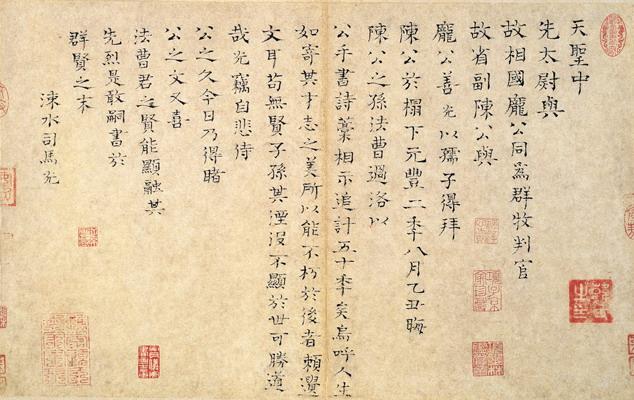 天聖中
先太尉與
故相國龐公同爲群牧判官
故省副陳公與
龐公善光以孺子得拜
陳公於榻下元豐二季八月乙丑晦
陳公之孫法曹過洛以
公手書詩藁相示追計五十季矣烏呼人生
如寄其才志之美所以能不朽於後者賴遺
文耳苟無賢子孫其湮沒不顯於世可勝道
哉光竊自悲侍
公之久今日乃得睹
公之文又喜
法曹君之賢能顯融其
先烈是敢嗣書於
群賢之末
涑水司馬光